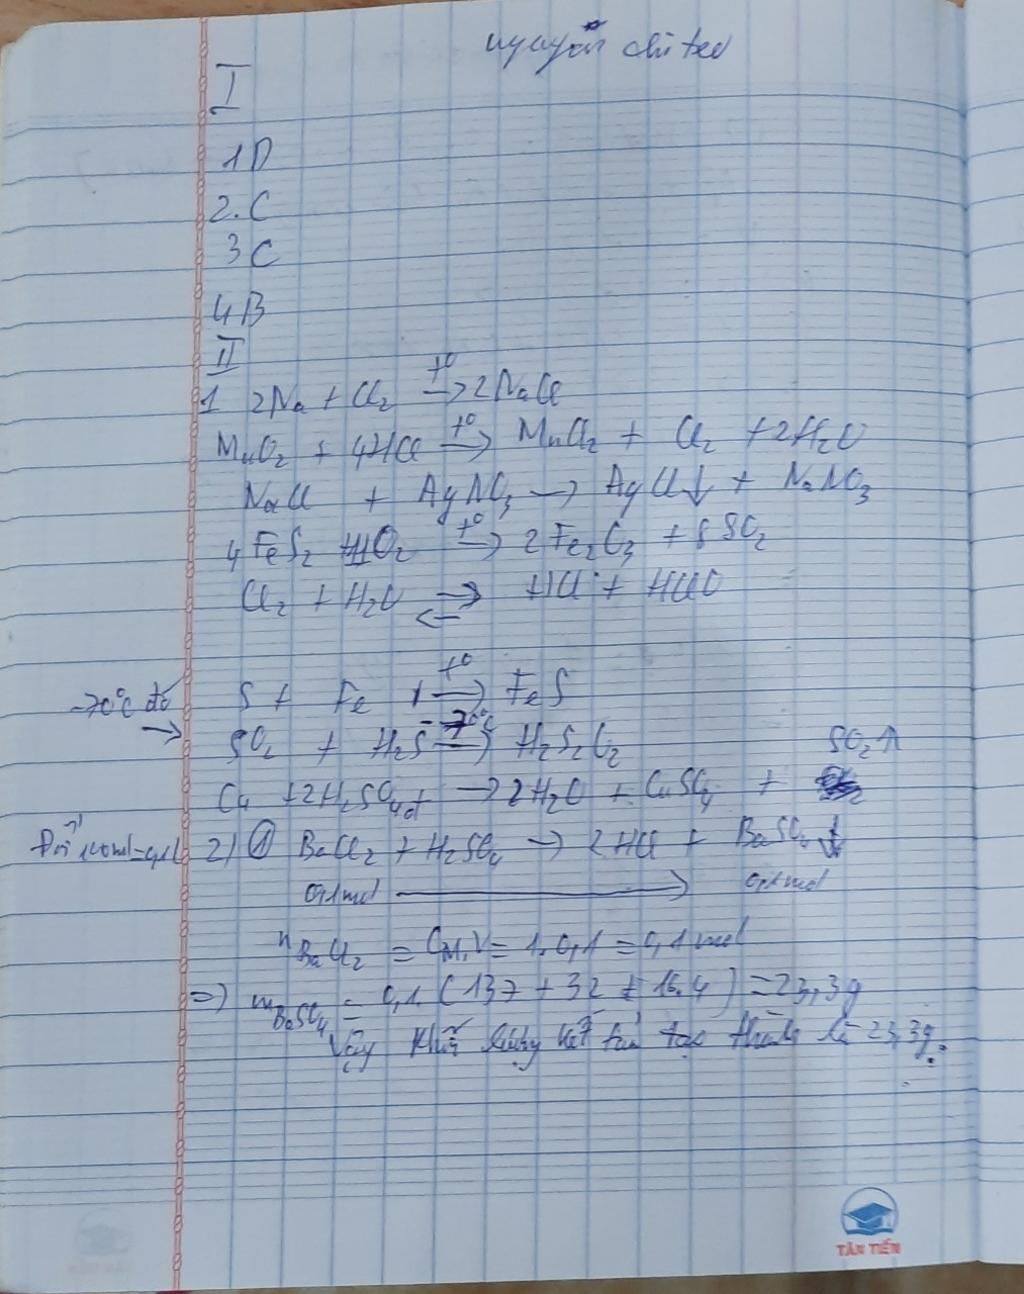 nguyễn chí teo
I
1D
2. C
3C
4B
II
1 2Na + Cl₂ →(t°) 2NaCl
MnO₂ + 4HCl →(t°) MnCl₂ + Cl₂ + 2H₂O
NaCl + AgNO₃ → AgCl↓ + NaNO₃
4FeS₂ + 11O₂ →(t°) 2Fe₂O₃ + 8SO₂
Cl₂ + H₂O ⇄ HCl + HClO
S + Fe →(t°) FeS
-70°C
→ SO₂ + H₂S →(-70°C) H₂S₂O₂
Cu + 2H₂SO₄đ → 2H₂O + CuSO₄ + SO₂↑
Đổi 100ml=0,1l
2) ① BaCl₂ + H₂SO₄ → 2HCl + BaSO₄↓
0,1mol → 0,1mol
nBaCl₂ = CM.V = 1.0,1 = 0,1mol
=> mBaSO₄ = 0,1.(137 + 32 + 16.4) = 23,3g
Vậy khối lượng kết tủa tạo thành là 23,3g.
TÂN TIẾN